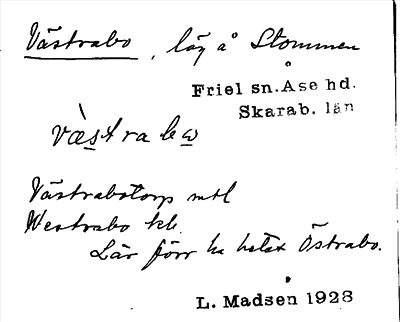 Västrabo, läg å Stommen
Friel sn. Åse hd.
Skarab. län
væ̀stra bω
Västrabotorp mtl
Westrabo kb.
Lär förr ha hetat Östrabo.
L. Madsen 1928